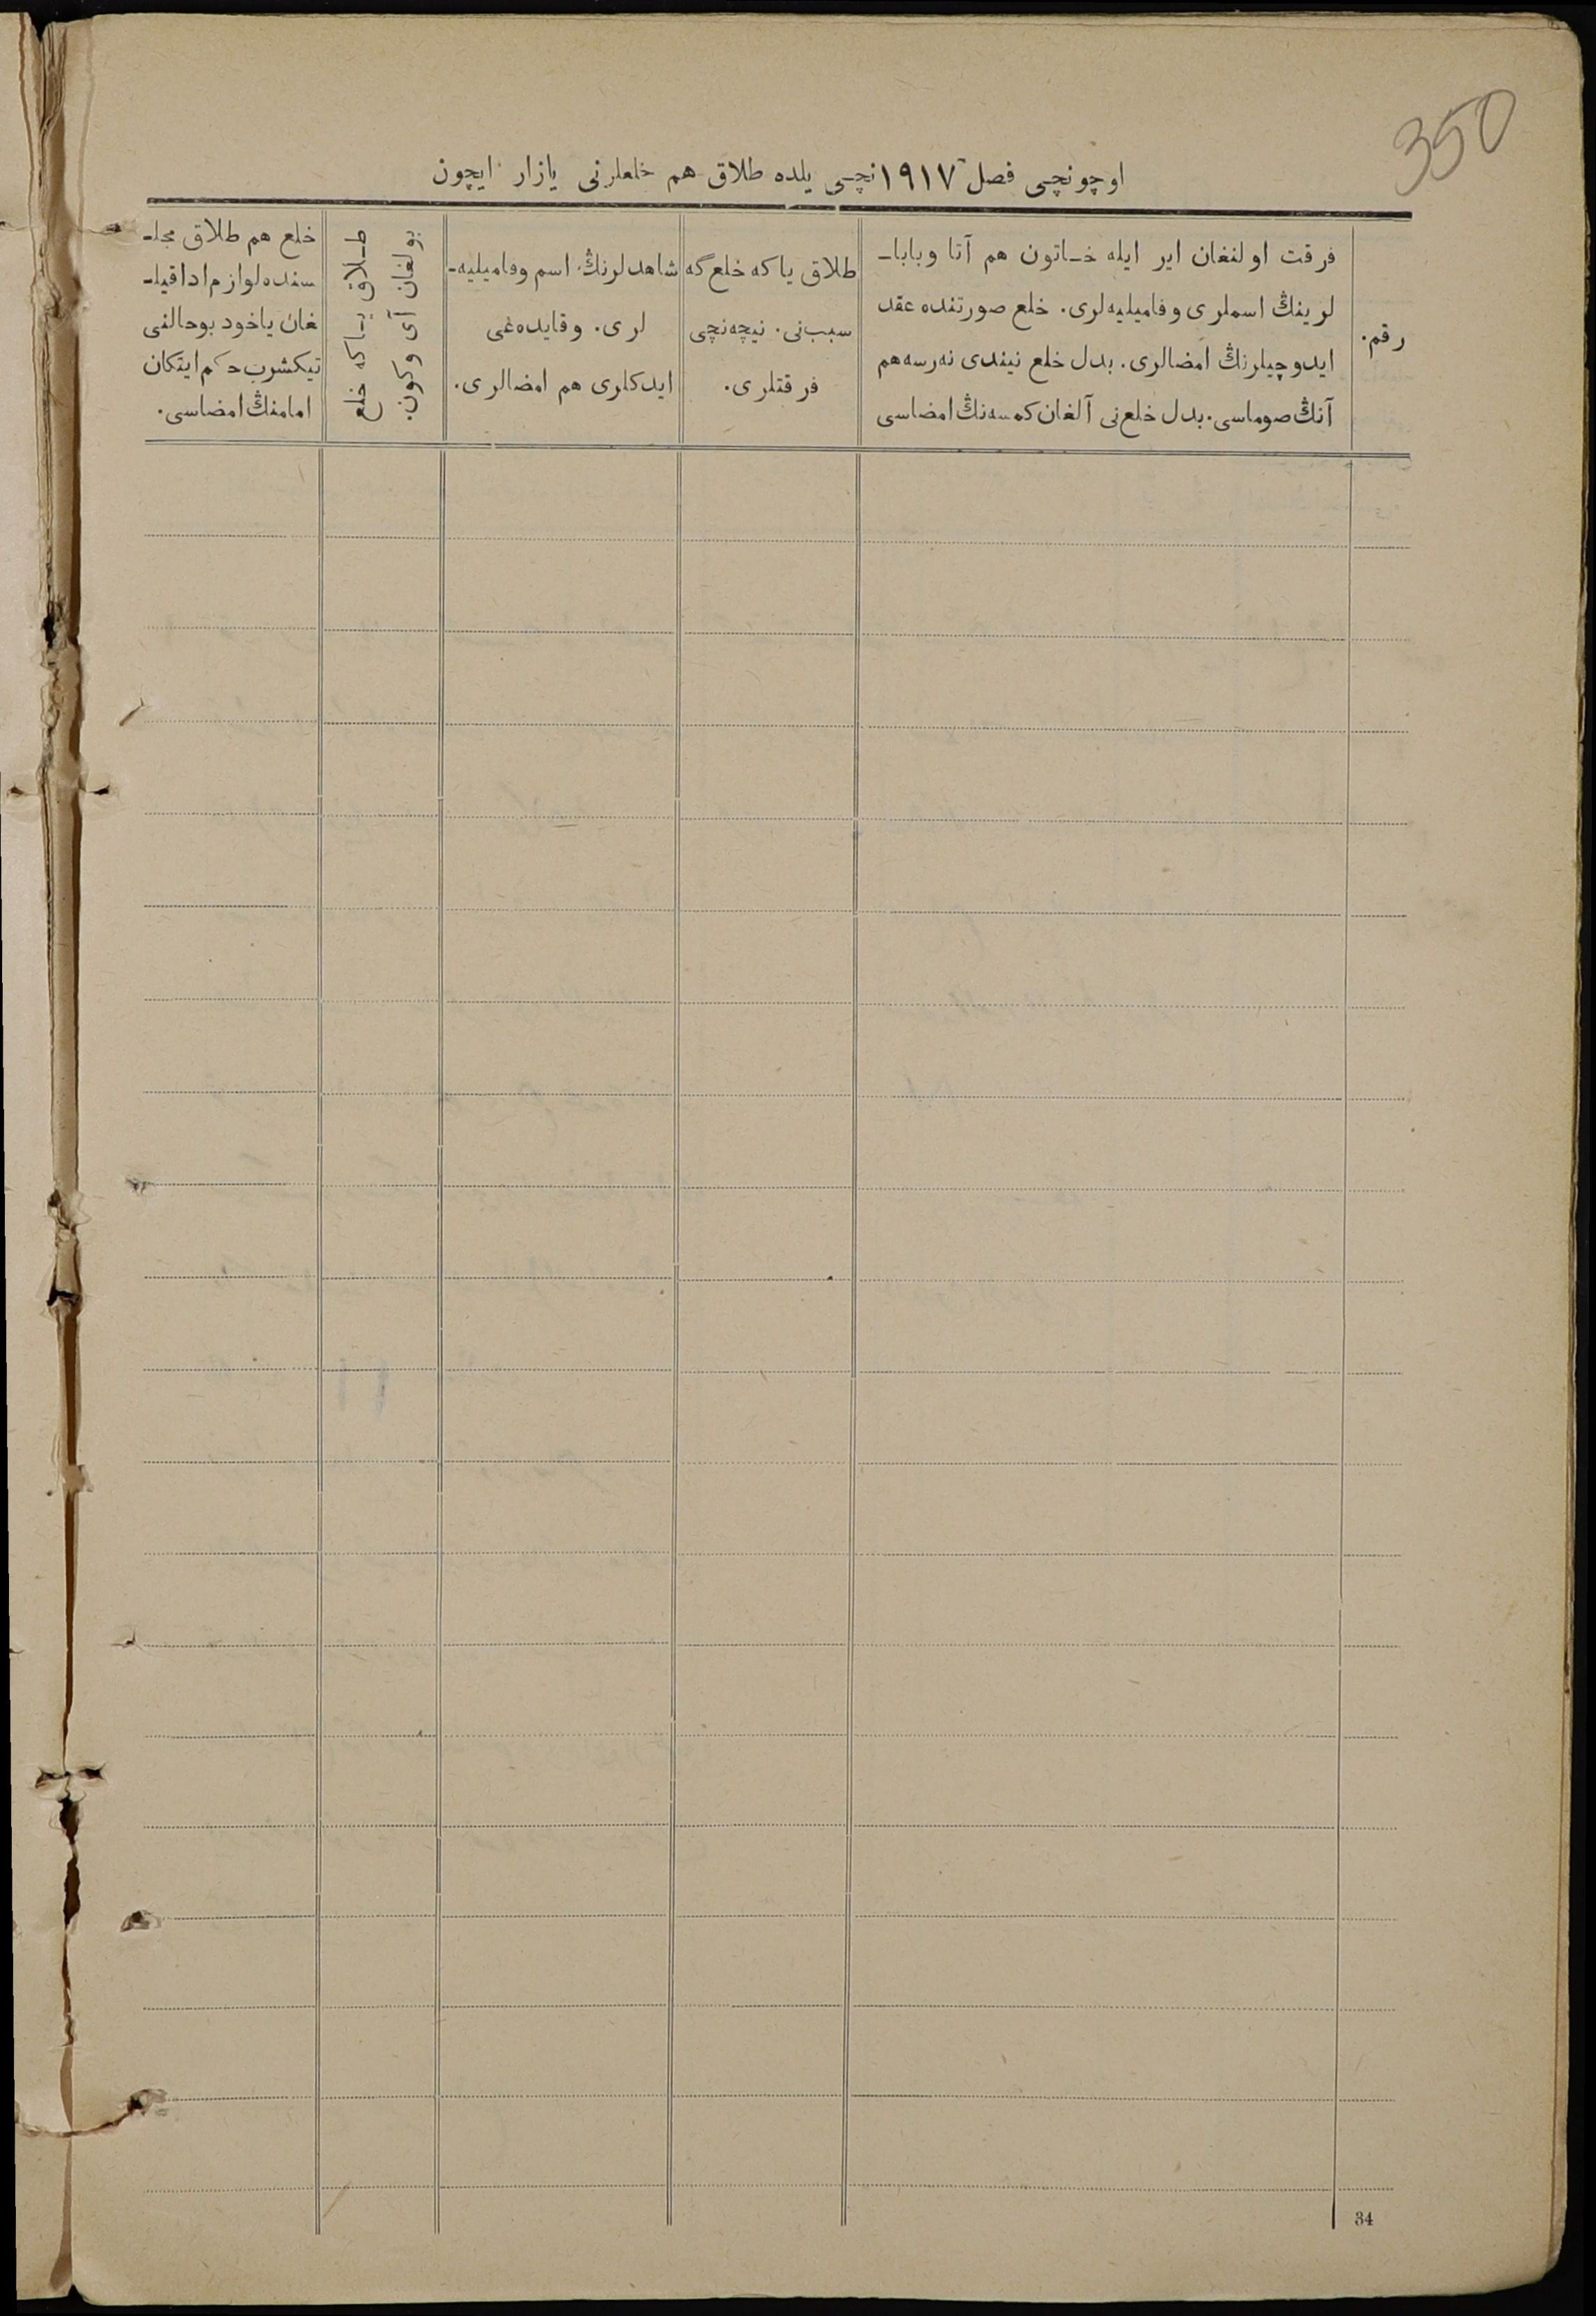 350
اوچونچی فصل ١٩١٧نچی یلده طلاق هم خلعلرنی یازار ایچون
رقم.
فرقت اولنغان ایر ایله خـاتون هم آتا وبابا-
لرینڭ اسملری وفامیلیه‌لری. خلع صورتنده عقد
ایدوچیلرنڭ امضالری. بدل خلع نیندی نه‌رسه هم
آنڭ صوماسی. بدل خلع‌نی آلغان کمسه‌نڭ امضاسی
طلاق یاکه خلع‌گه
سبب‌نی. نیچه‌نچی
فرقتلری.
شاهدلرنڭ اسم وفامیلیه-
لری. وقایده‌غی
ایدکلری هم امضالری.
طـلاق یـاکه خلع
بولغان آی وکون.
خلع هم طلاق مجلـ
سنده لوازم ادا قیلـ
غان یاخود بوحالنی
تیکشرب حکم ایتکان
امامنڭ امضاسی.
34